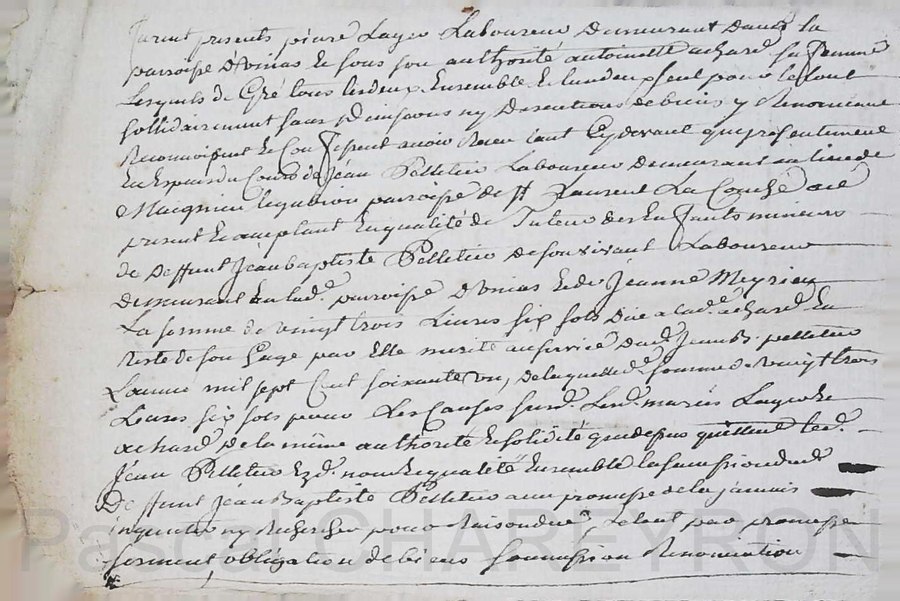 furent presents pierre Layes Laboureur Demeurant Dans la
parroisse D'Unias Et sous son authorité antoinette achard sa femme
Lesquels de Gré tous lesdeux Ensemble Et lundeux seul pour le tout
sollidairement sans Divisions ny Discutions de biens y Renonceant
Reconnoissent Et Confessent avoir Receu tant Cydevant que présentement
En Espèces du Cours de Jéan Pelletier Laboureur Demeurant au lieu de
Maignieu parroisse de St Laurent La Conche
present Et acceptant En qualité de Tuteur des Enfants mineurs
de Deffunt Jéan baptiste Pelletier de son vivant Laboureur
demeurant En lad. parroisse D'Unias Et de Jeanne Meyrieu
La somme de vingt trois Livres six sols Due a lad. achard En
Reste de son Gage par Elle merité au service dud. Jean B. pelletier
L'année mil sept Cent soixante un, de laquelle d. somme de vingt trois
Livres six sols pour Les Causes susd. Lesd. mariés Layes Et
achard De la même authorité Et solidité que dessus quittent led.
Jéan Pelletier Esd. nom Et qualité Ensemble la succession dud.
Deffunt Jéan Baptiste Pelletier avec promesse de la jamais
inquieter ny Rechercher pour Raison du d. Le tout par promesse
serment, obligation de biens soumission Renonciation
Pascal CHAREYRON